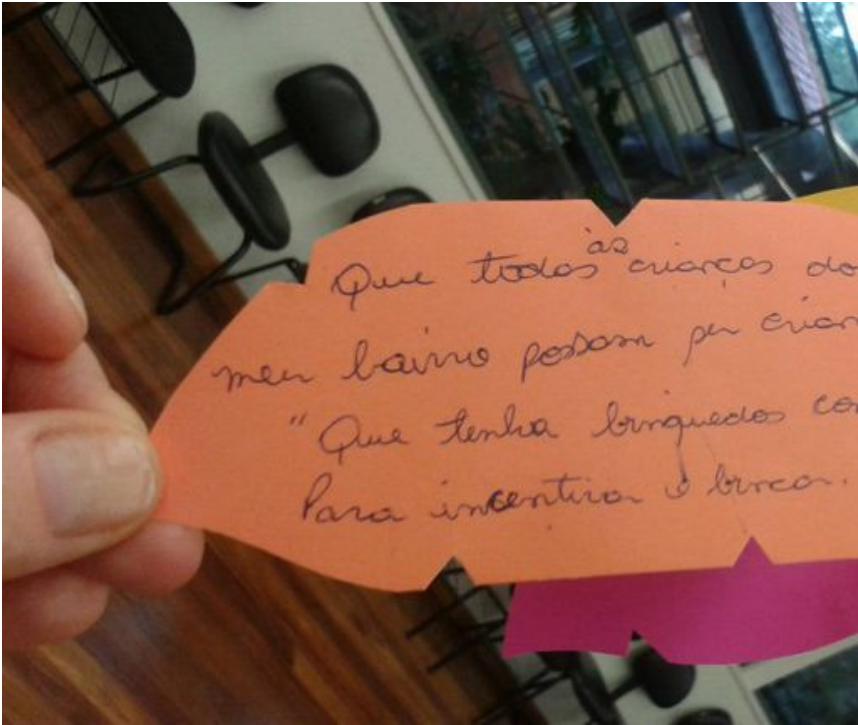 Que todas às crianças do
meu bairro possam ser crian
"Que tenha brinquedos com
Para incentivar o brincar.